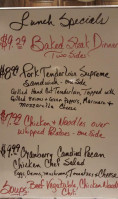 Lunch Specials
$9.29 Baked Steak Dinner
Two Sides
$8.99 Pork Tenderloin Supreme
Sandwich - one side
Grilled Hand Cut Tenderloin, Topped with
Grilled Onions & Green Peppers, Marinara &
Mozzarella Cheese
$7.99 Chicken & Noodles over
whipped Potatoes - one side
$9.99 Cranberry Candied Pecan
Chicken Chef Salad
Eggs, Cucumbers, Tomatoes & Cheese
Soups Beef Vegetable, Chicken Noodle
Chili